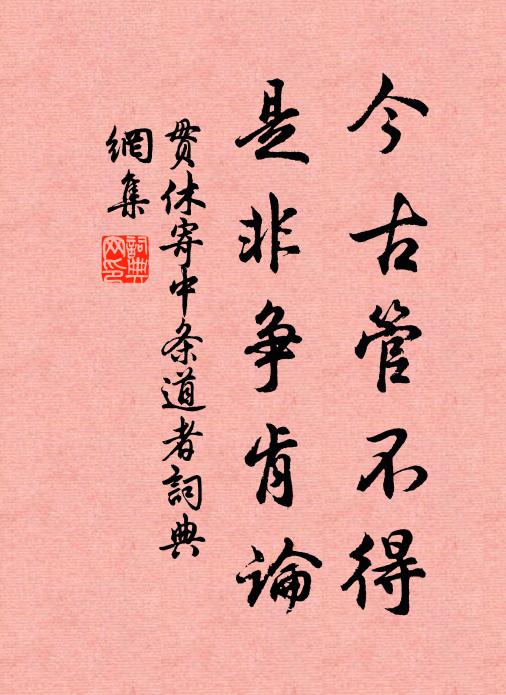 今古管不得
是非争肯论
贯休寄中条道者詞典
網集
詞典
网印